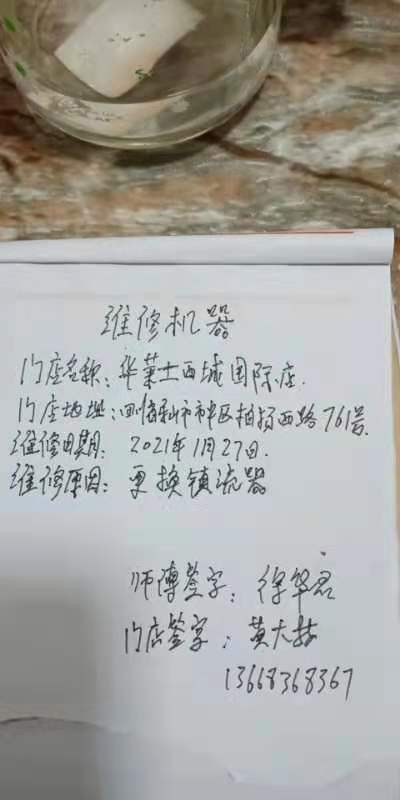 维修机器
门店名称：华莱士西城国际店.
门店地址：四川省乐山市市中区柏杨西路761号.
维修日期：2021年1月27日.
维修原因：更换镇流器
师傅签字：徐华君
门店签字：黄大
13668368367